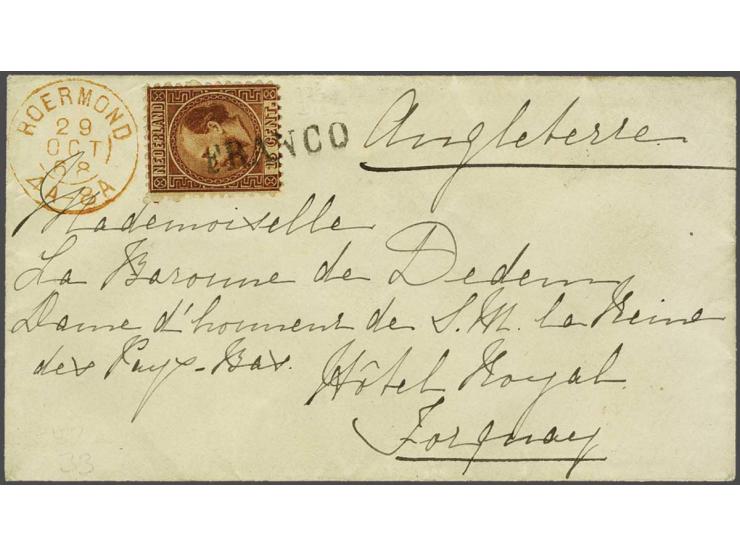 ROERMOND
29
OCT
68
NEDERLAND
15 CENT.
FRANCO
Angleterre
Mademoiselle
La Baronne de Dedem
Dame d'honneur de S. M. la Reine
des Pays-Bas.
Hôtel Royal
Torquay
33